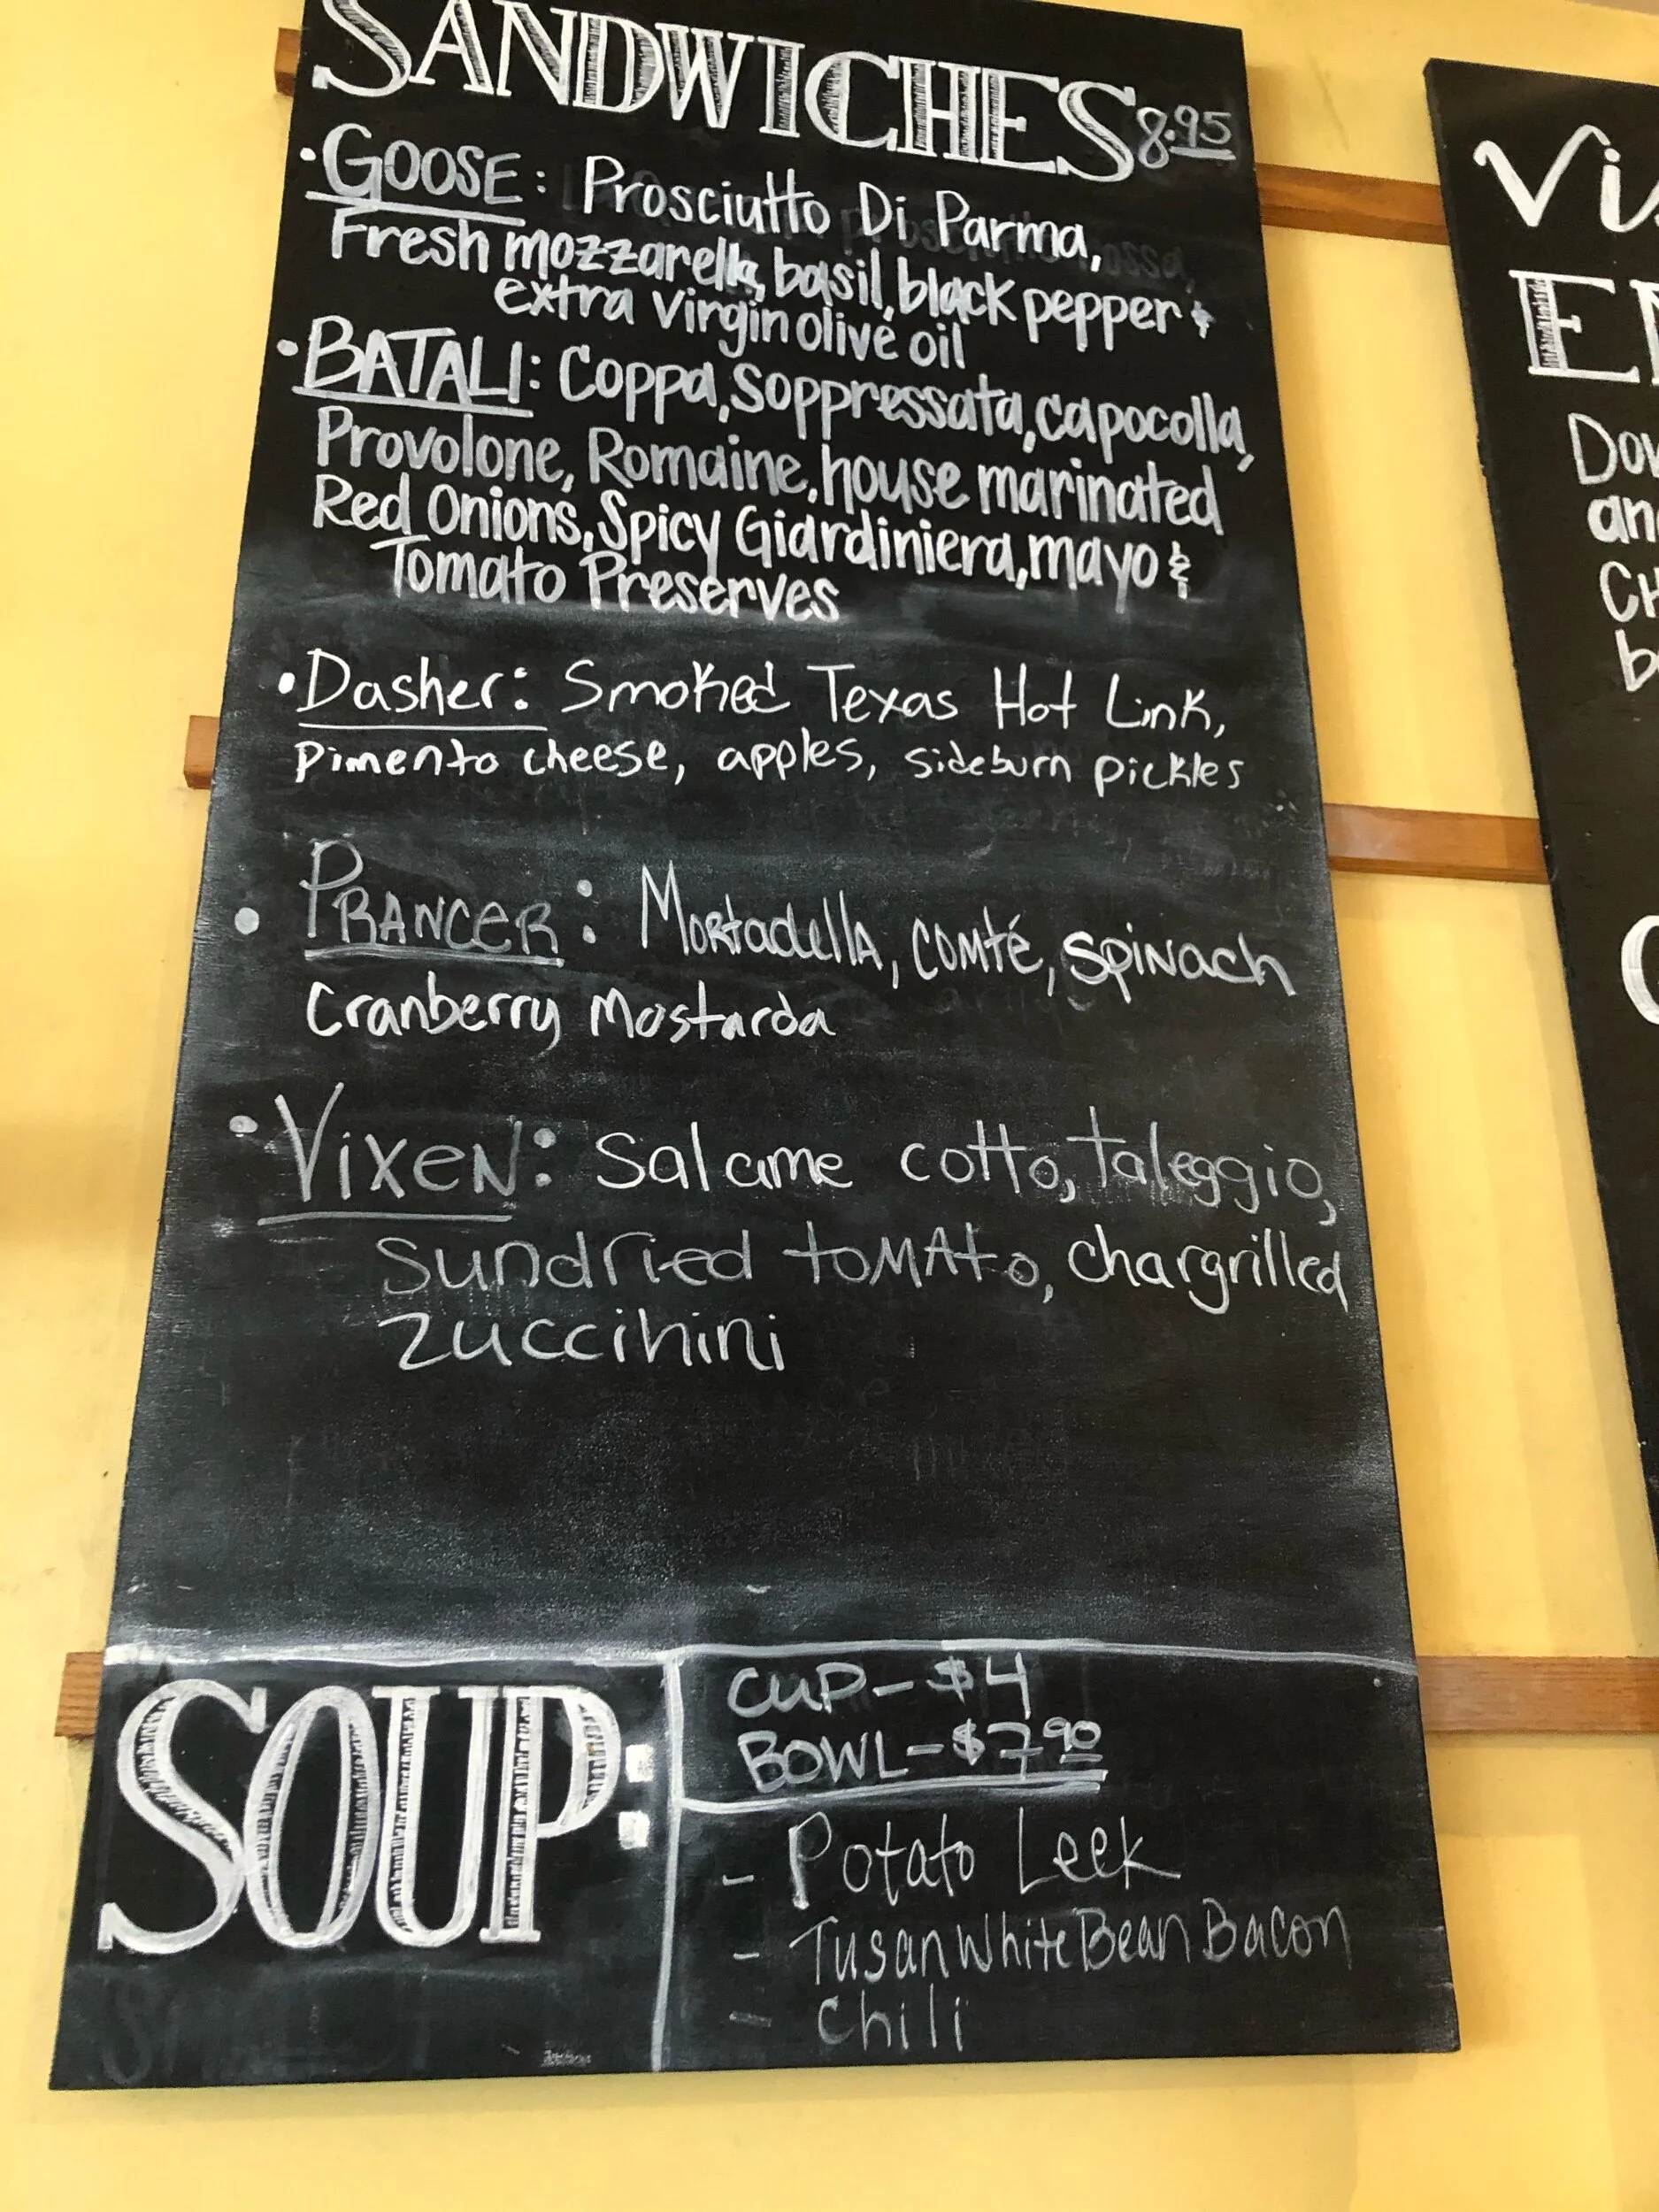 SANDWICHES 8.95
• GOOSE: Prosciutto Di Parma,
Fresh mozzarella, basil, black pepper &
extra virgin olive oil
• BATALI: Coppa, Soppressata, capocolla,
Provolone, Romaine, house marinated
Red Onions, Spicy Giardiniera, mayo &
Tomato Preserves
• Dasher: Smoked Texas Hot Link,
Pimento cheese, apples, sideburn pickles
• PRANCER: Mortadella, comté, spinach
Cranberry Mostarda
• Vixen: Salame cotto, taleggio,
sundried tomato, chargrilled
zuccihini
SOUP:
CUP - $4
BOWL - $7.90
- Potato Leek
- Tusan White Bean Bacon
- Chili